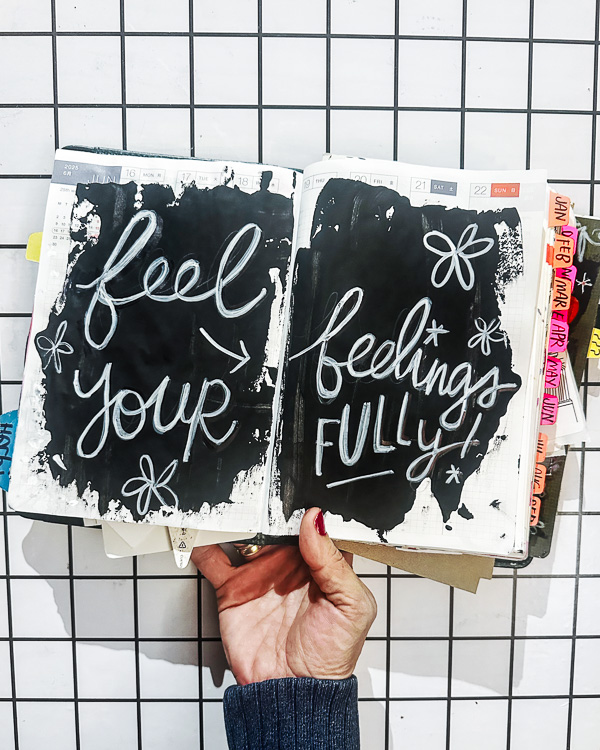 2025
6月 JUN
16 MON 月
17 TUE
18
THU
20
21 SAT 土
22 SUN 日
feel
YOUR
feelings
FULLY!
JAN
FEB
MAR
APR
MAY
JUN
???